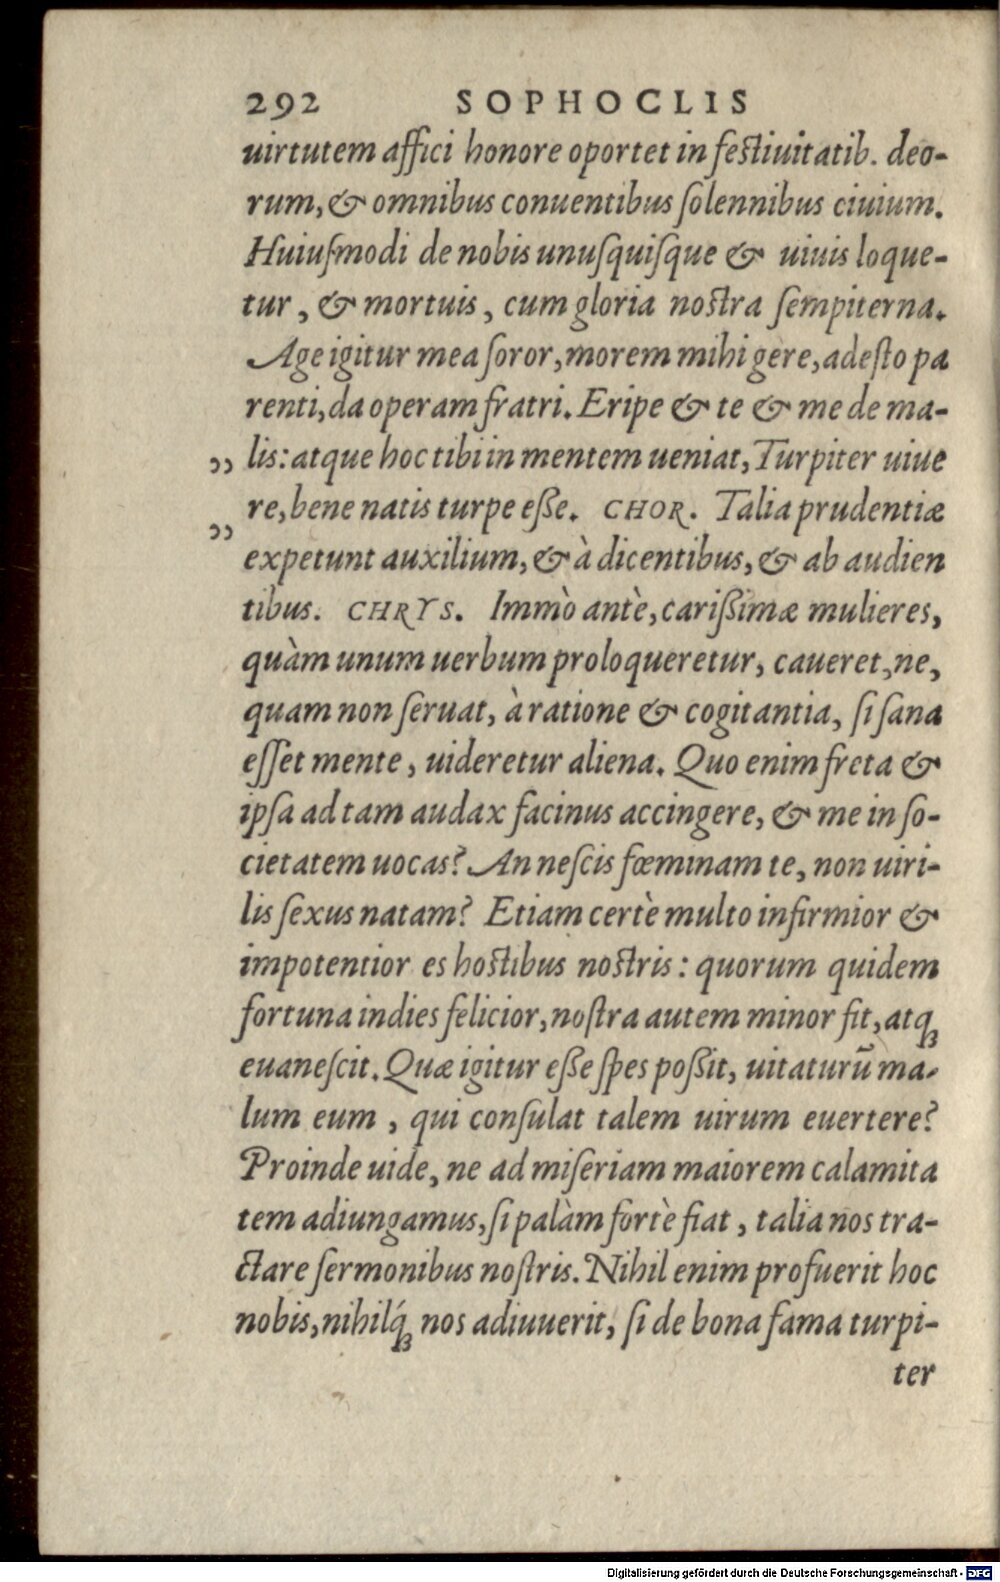 292 SOPHOCLIS
uirtutem affici honore oportet in festiuitatib. deo-
rum, & omnibus conuentibus ſolennibus ciuium.
Huiuſmodi de nobis unuſquiſque & uiuis loque-
tur, & mortuis, cum gloria nostra ſempiterna.
Age igitur mea ſoror, morem mihi gere, adeſto pa
renti, da operam fratri. Eripe & te & me de ma-
„ lis: atque hoc tibi in mentem ueniat, Turpiter uiue
„ re, bene natis turpe eſſe. CHOR. Talia prudentiæ
expetunt auxilium, & à dicentibus, & ab audien
tibus. CHRYS. Immò antè, cariſſimæ mulieres,
quàm unum uerbum proloqueretur, caueret, ne,
quam non ſeruat, à ratione & cogitantia, ſi ſana
eſſet mente, uideretur aliena. Quo enim freta &
ipſa ad tam audax facinus accingere, & me in ſo-
cietatem uocas? An neſcis fœminam te, non uiri-
lis ſexus natam? Etiam certè multo infirmior &
impotentior es hostibus nostris: quorum quidem
fortuna indies felicior, noſtra autem minor fit, atq́;
euaneſcit. Quæ igitur eſſe ſpes poſſit, uitaturū ma-
lum eum, qui conſulat talem uirum euertere?
Proinde uide, ne ad miſeriam maiorem calamita
tem adiungamus, ſi palàm fortè fiat, talia nos tra-
ctare ſermonibus noſtris. Nihil enim profuerit hoc
nobis, nihilq́; nos adiuuerit, ſi de bona fama turpi-
ter
Digitalisierung gefördert durch die Deutsche Forschungsgemeinschaft - DFG